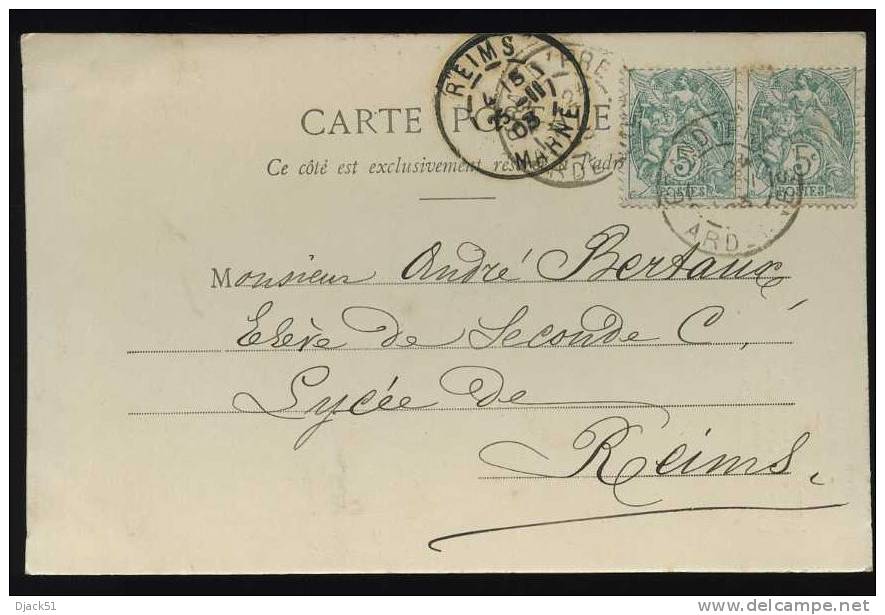 CARTE
Ce côté est exclusivement
REIMS
MARNE
03
5c
POSTES
5c
POSTES
ARD
Monsieur André Bertaux
Elève de Seconde C,
Lycée de
Reims.
Djack51
http://www.delcampe.net